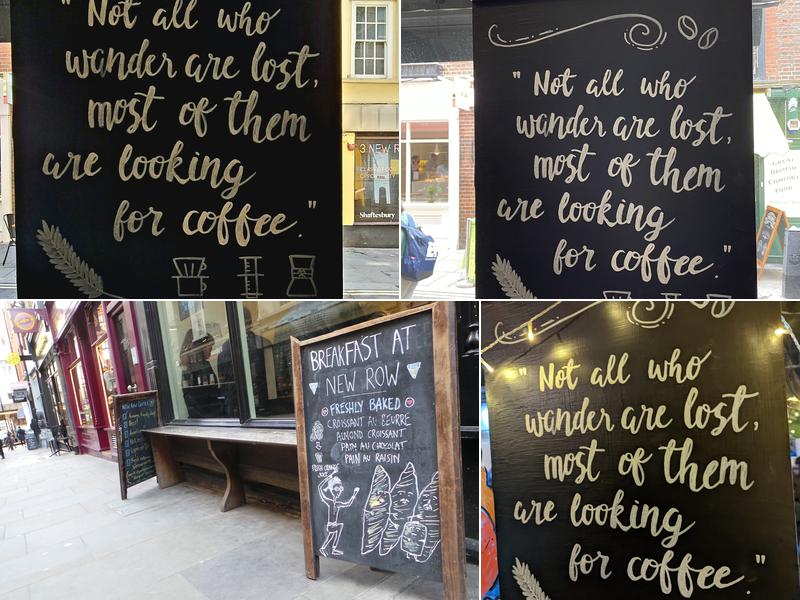 "Not all who
wander are lost,
most of them
are looking
for coffee."
3 NEW R
Shaftesbury
"Not all who
wander are lost,
most of them
are looking
for coffee."
GREAT
BRITISH
COMFORT
FOOD
BREAKFAST AT
NEW ROW
FRESHLY BAKED
CROISSANT AU BEURRE
ALMOND CROISSANT
PAIN AU CHOCOLAT
PAIN AU RAISIN
"Not all who
wander are lost,
most of them
are looking
for coffee."